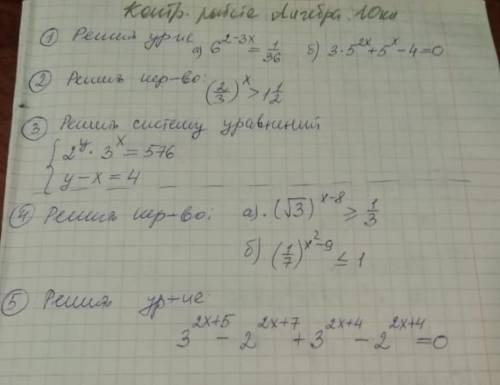 Контр. работа Алгебра. 10кл
① Решить ур-ие а) 6^{2-3x} = 1/36 б) 3·5^{2x}+5^{x}-4=0
② Решить нер-во: (2/3)^{x} > 1 1/2
③ Решить систему уравнений
{ 2^{y}·3^{x}=576
y-x=4
④ Решить нер-во: а). (√3)^{x-8} ⩾ 1/3
б) (1/7)^{x^{2}-9} ≤ 1
⑤ Решить ур-ие
3^{2x+5} - 2^{2x+7} + 3^{2x+4} - 2^{2x+4} = 0